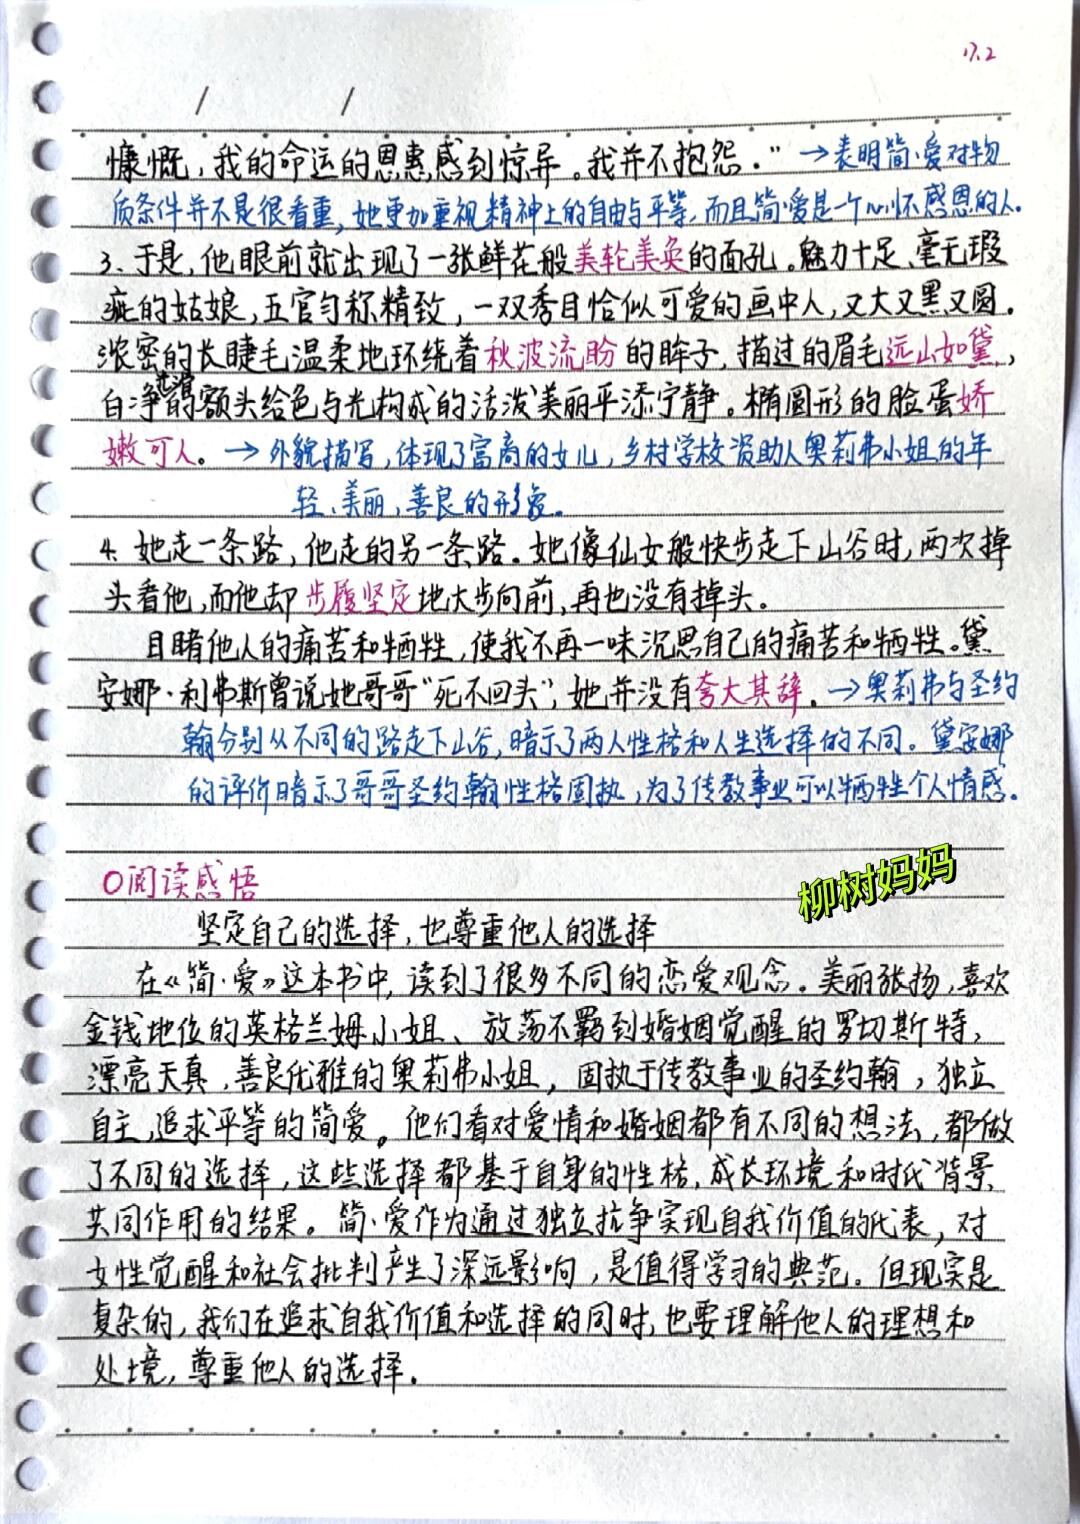 17.2
慷慨，我的命运的恩惠感到惊异。我并不抱怨。" →表明简·爱对物
质条件并不是很看重，她更加重视精神上的自由与平等，而且简·爱是一个心怀感恩的人。
3、于是，他眼前就出现了一张鲜花般美轮美奂的面孔。魅力十足、毫无瑕
疵的姑娘，五官匀称精致，一双秀目恰似可爱的画中人，又大又黑又圆。
浓密的长睫毛温柔地环绕着秋波流盼的眸子，描过的眉毛远山如黛，
白净光滑的额头给色与光构成的活泼美丽平添宁静。椭圆形的脸蛋娇
嫩可人。→外貌描写，体现了富商的女儿，乡村学校资助人奥莉弗小姐的年
轻、美丽，善良的形象。
4. 她走一条路，他走的另一条路。她像仙女般快步走下山谷时，两次掉
头看他，而他却步履坚定地大步向前，再也没有掉头。
目睹他人的痛苦和牺牲，使我不再一味沉思自己的痛苦和牺牲。黛
安娜·利弗斯曾说她哥哥"死不回头"，她并没有夸大其辞。→奥莉弗与圣约
翰分别从不同的路走下山谷，暗示了两人性格和人生选择的不同。黛安娜
的评价暗示了哥哥圣约翰性格固执，为了传教事业可以牺牲个人情感。
O阅读感悟
柳树妈妈
坚定自己的选择，也尊重他人的选择
在《简·爱》这本书中，读到了很多不同的恋爱观念。美丽张扬，喜欢
金钱地位的英格兰姆小姐、放荡不羁到婚姻觉醒的罗切斯特，
漂亮天真，善良优雅的奥莉弗小姐，固执于传教事业的圣约翰，独立
自主，追求平等的简爱。他们看对爱情和婚姻都有不同的想法，都做
了不同的选择，这些选择都基于自身的性格，成长环境和时代背景
共同作用的结果。简·爱作为通过独立抗争实现自我价值的代表，对
女性觉醒和社会批判产生了深远影响，是值得学习的典范。但现实是
复杂的，我们在追求自我价值和选择的同时，也要理解他人的理想和
处境，尊重他人的选择。